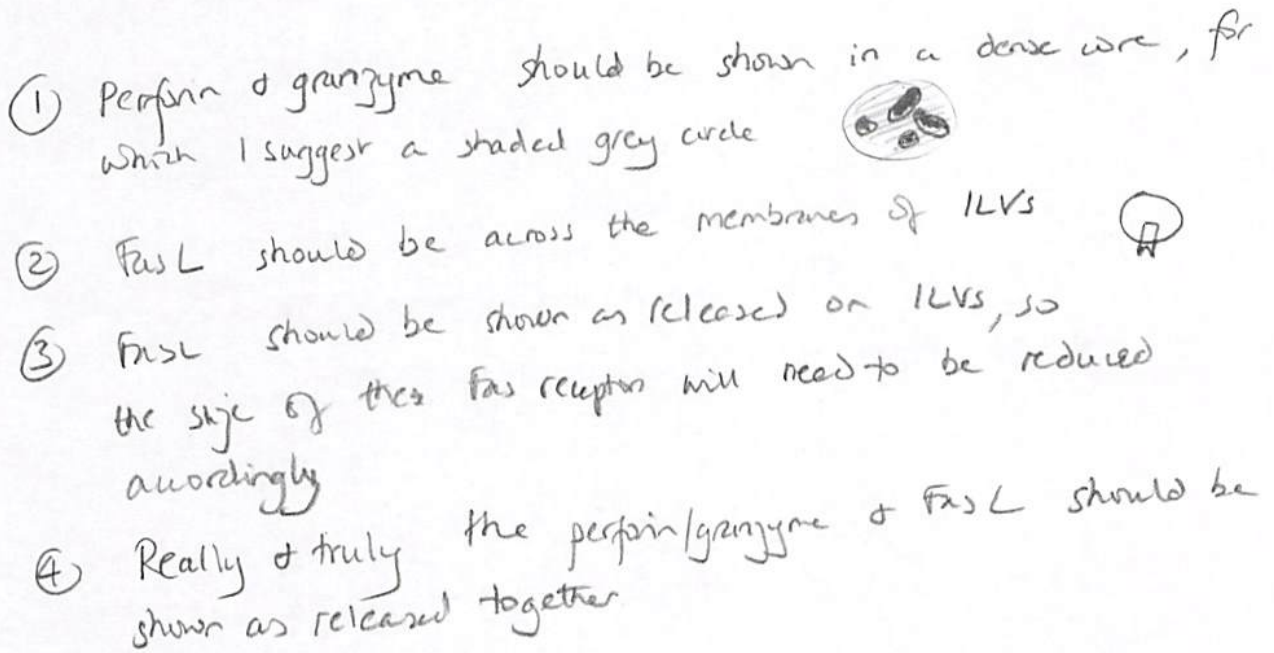 ① Perforin & granzyme should be shown in a dense core, for
which I suggest a shaded grey circle
② FasL should be across the membranes of ILVs
③ FasL should be shown as released on ILVs, so
the size of the Fas receptor will need to be reduced
accordingly
④ Really & truly the perforin/granzyme & FasL should be
shown as released together